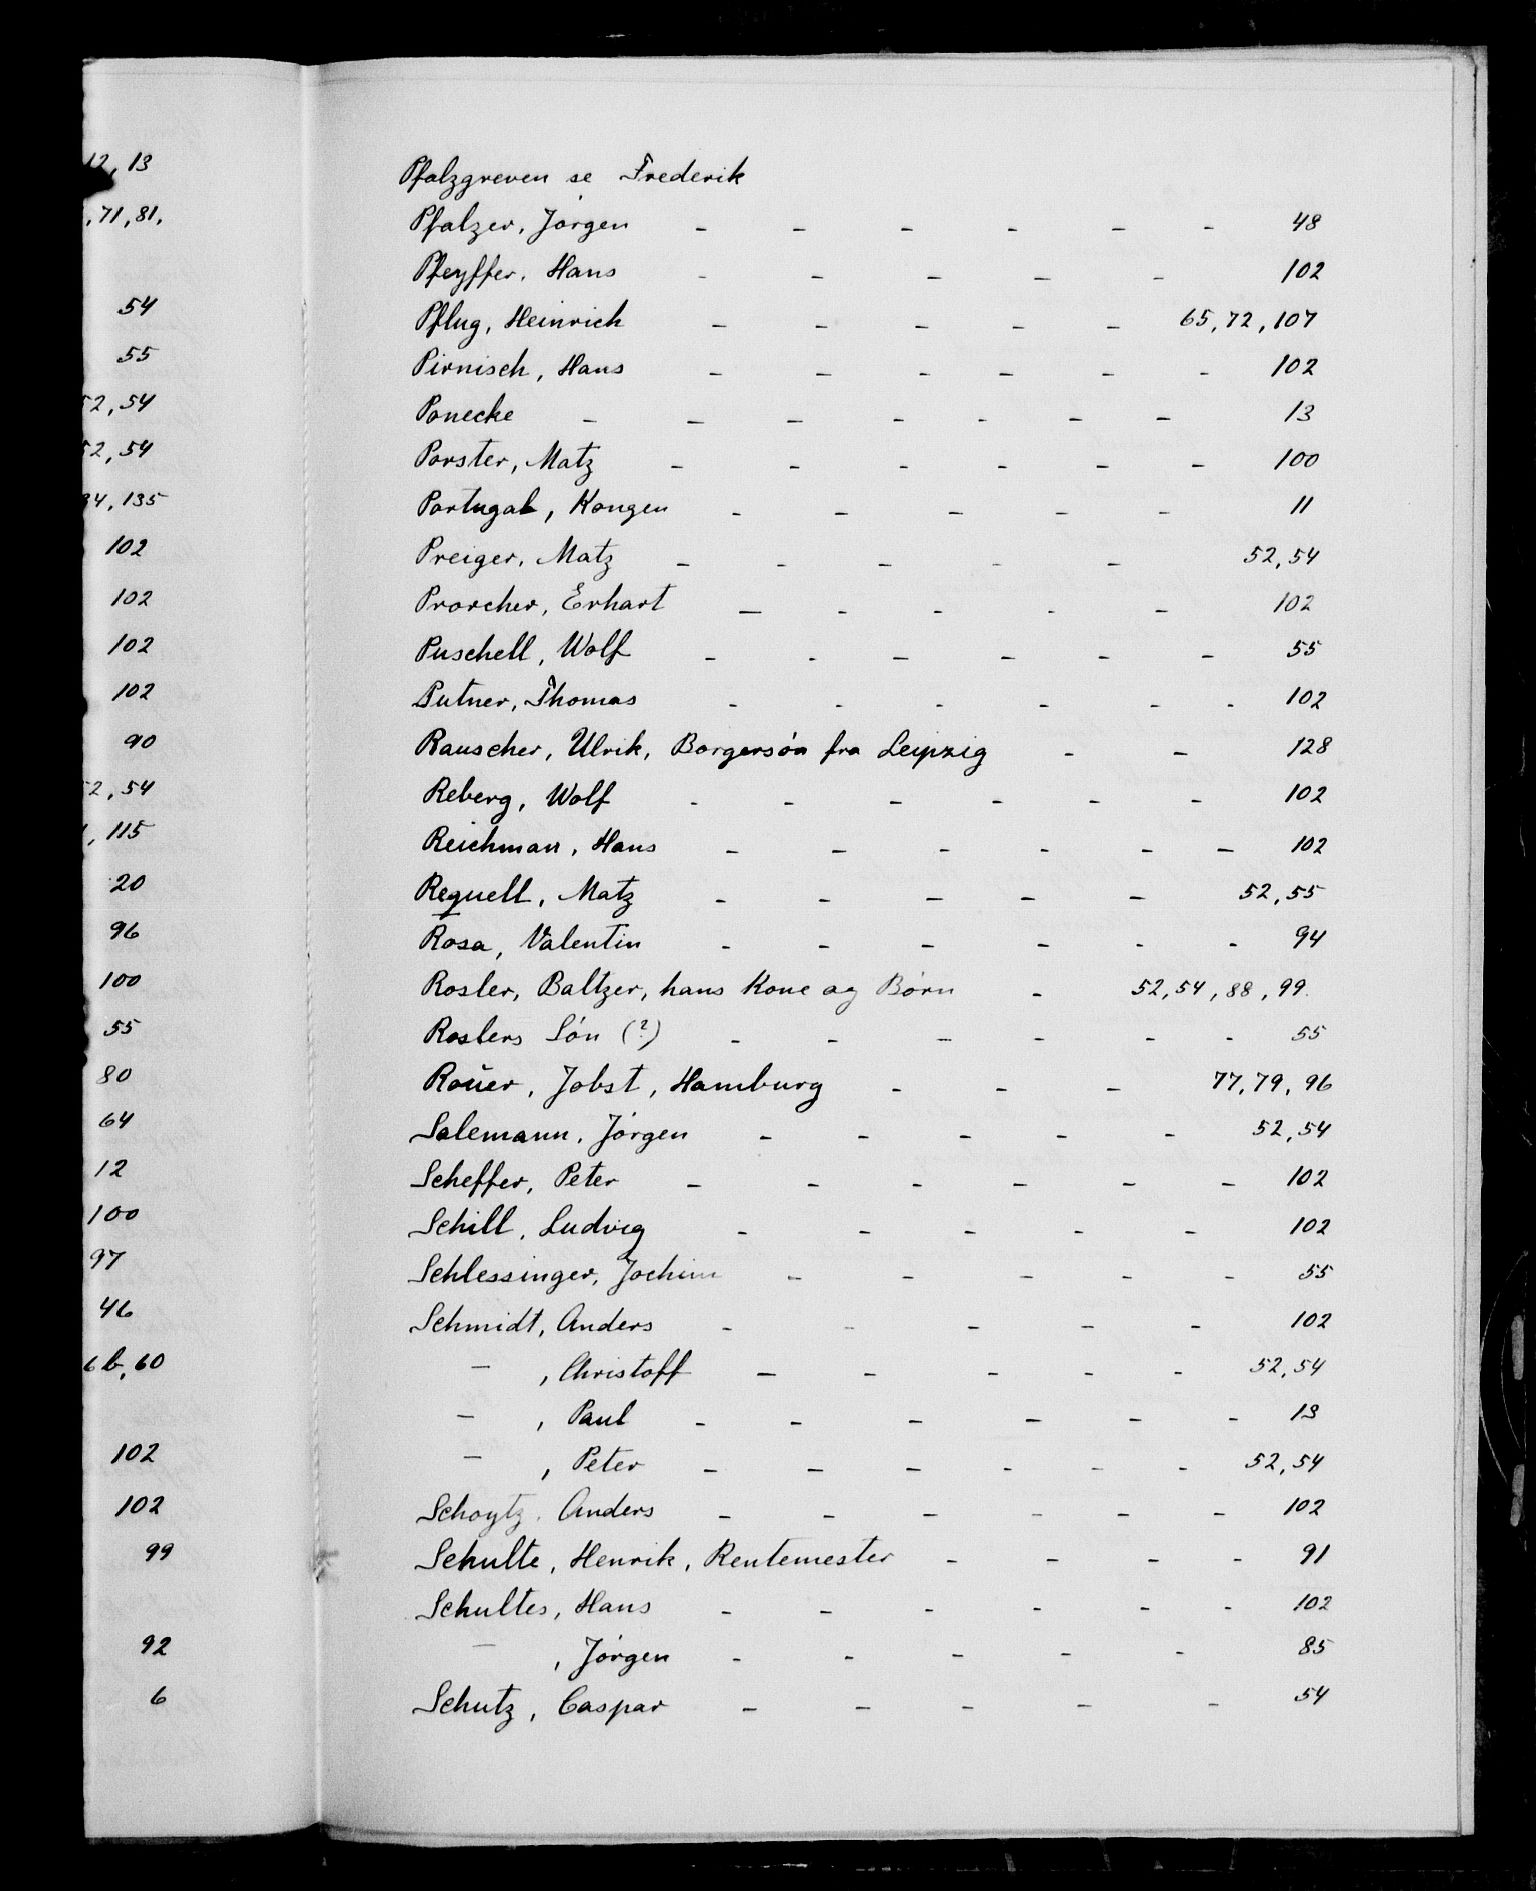 12, 13
, 71, 81,
54
55
52, 54
52, 54
34, 135
102
102
102
102
90
52, 54
, 115
20
96
100
55
80
64
12
100
97
46
6 b, 60
102
102
99
92
6
Pfalzgreven se Frederik
Pfalzer, Jørgen - - - - - - 48
Pfeyffer, Hans - - - - - 102
Pflug, Heinrich - - - - - 65, 72, 107
Pirnisch, Hans - - - - - - 102
Ponecke - - - - - - - 13
Porster, Matz - - - - - - 100
Portugal, Kongen - - - - - 11
Preiger, Matz - - - - - 52, 54
Prorcher, Erhart - - - - - 102
Puschell, Wolf - - - - - - 55
Putner, Thomas - - - - - - 102
Rauscher, Ulrik, Borgersøn fra Leipzig - - 128
Reberg, Wolf - - - - - - 102
Reichman, Hans - - - - - - 102
Requell, Matz - - - - - 52, 55
Rosa, Valentin - - - - - - 94
Rosler, Baltzer, hans Kone og Børn - 52, 54, 88, 99.
Roslers Søn (?) - - - - - - 55
Roŭer, Jobst, Hamburg - - - 77, 79, 96
Salemann, Jørgen - - - - - 52, 54
Scheffer, Peter - - - - - - 102
Schill, Ludvig - - - - - 102
Schlessinger, Jochim - - - - - 55
Schmidt, Anders - - - - - 102
- , Christoff - - - - - 52, 54
- , Paul - - - - - - 13
- , Peter - - - - - - 52, 54
Schoytz, Anders - - - - - - 102
Schulte, Henrik, Rentemester - - - - 91
Schultes, Hans - - - - - - 102
- , Jørgen - - - - - 85
Schutz, Caspar - - - - - 54